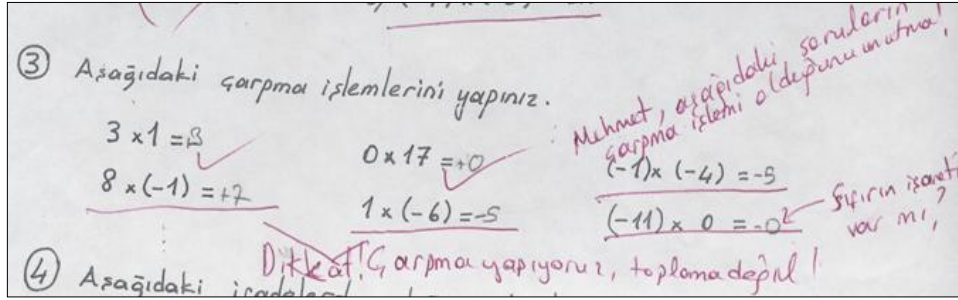 ③ Aşağıdaki çarpma işlemlerini yapınız.
3 x 1 = 3
0 x 17 = +0
(-1) x (-4) = -5
8 x (-1) = +7
1 x (-6) = -5
(-11) x 0 = -0
Mehmet, aşağıdaki soruların
çarpma işlemi olduğunu unutma!
Sıfırın işareti
var mı?
Dikkat! Çarpma yapıyoruz, toplama değil!
④ Aşağıdaki